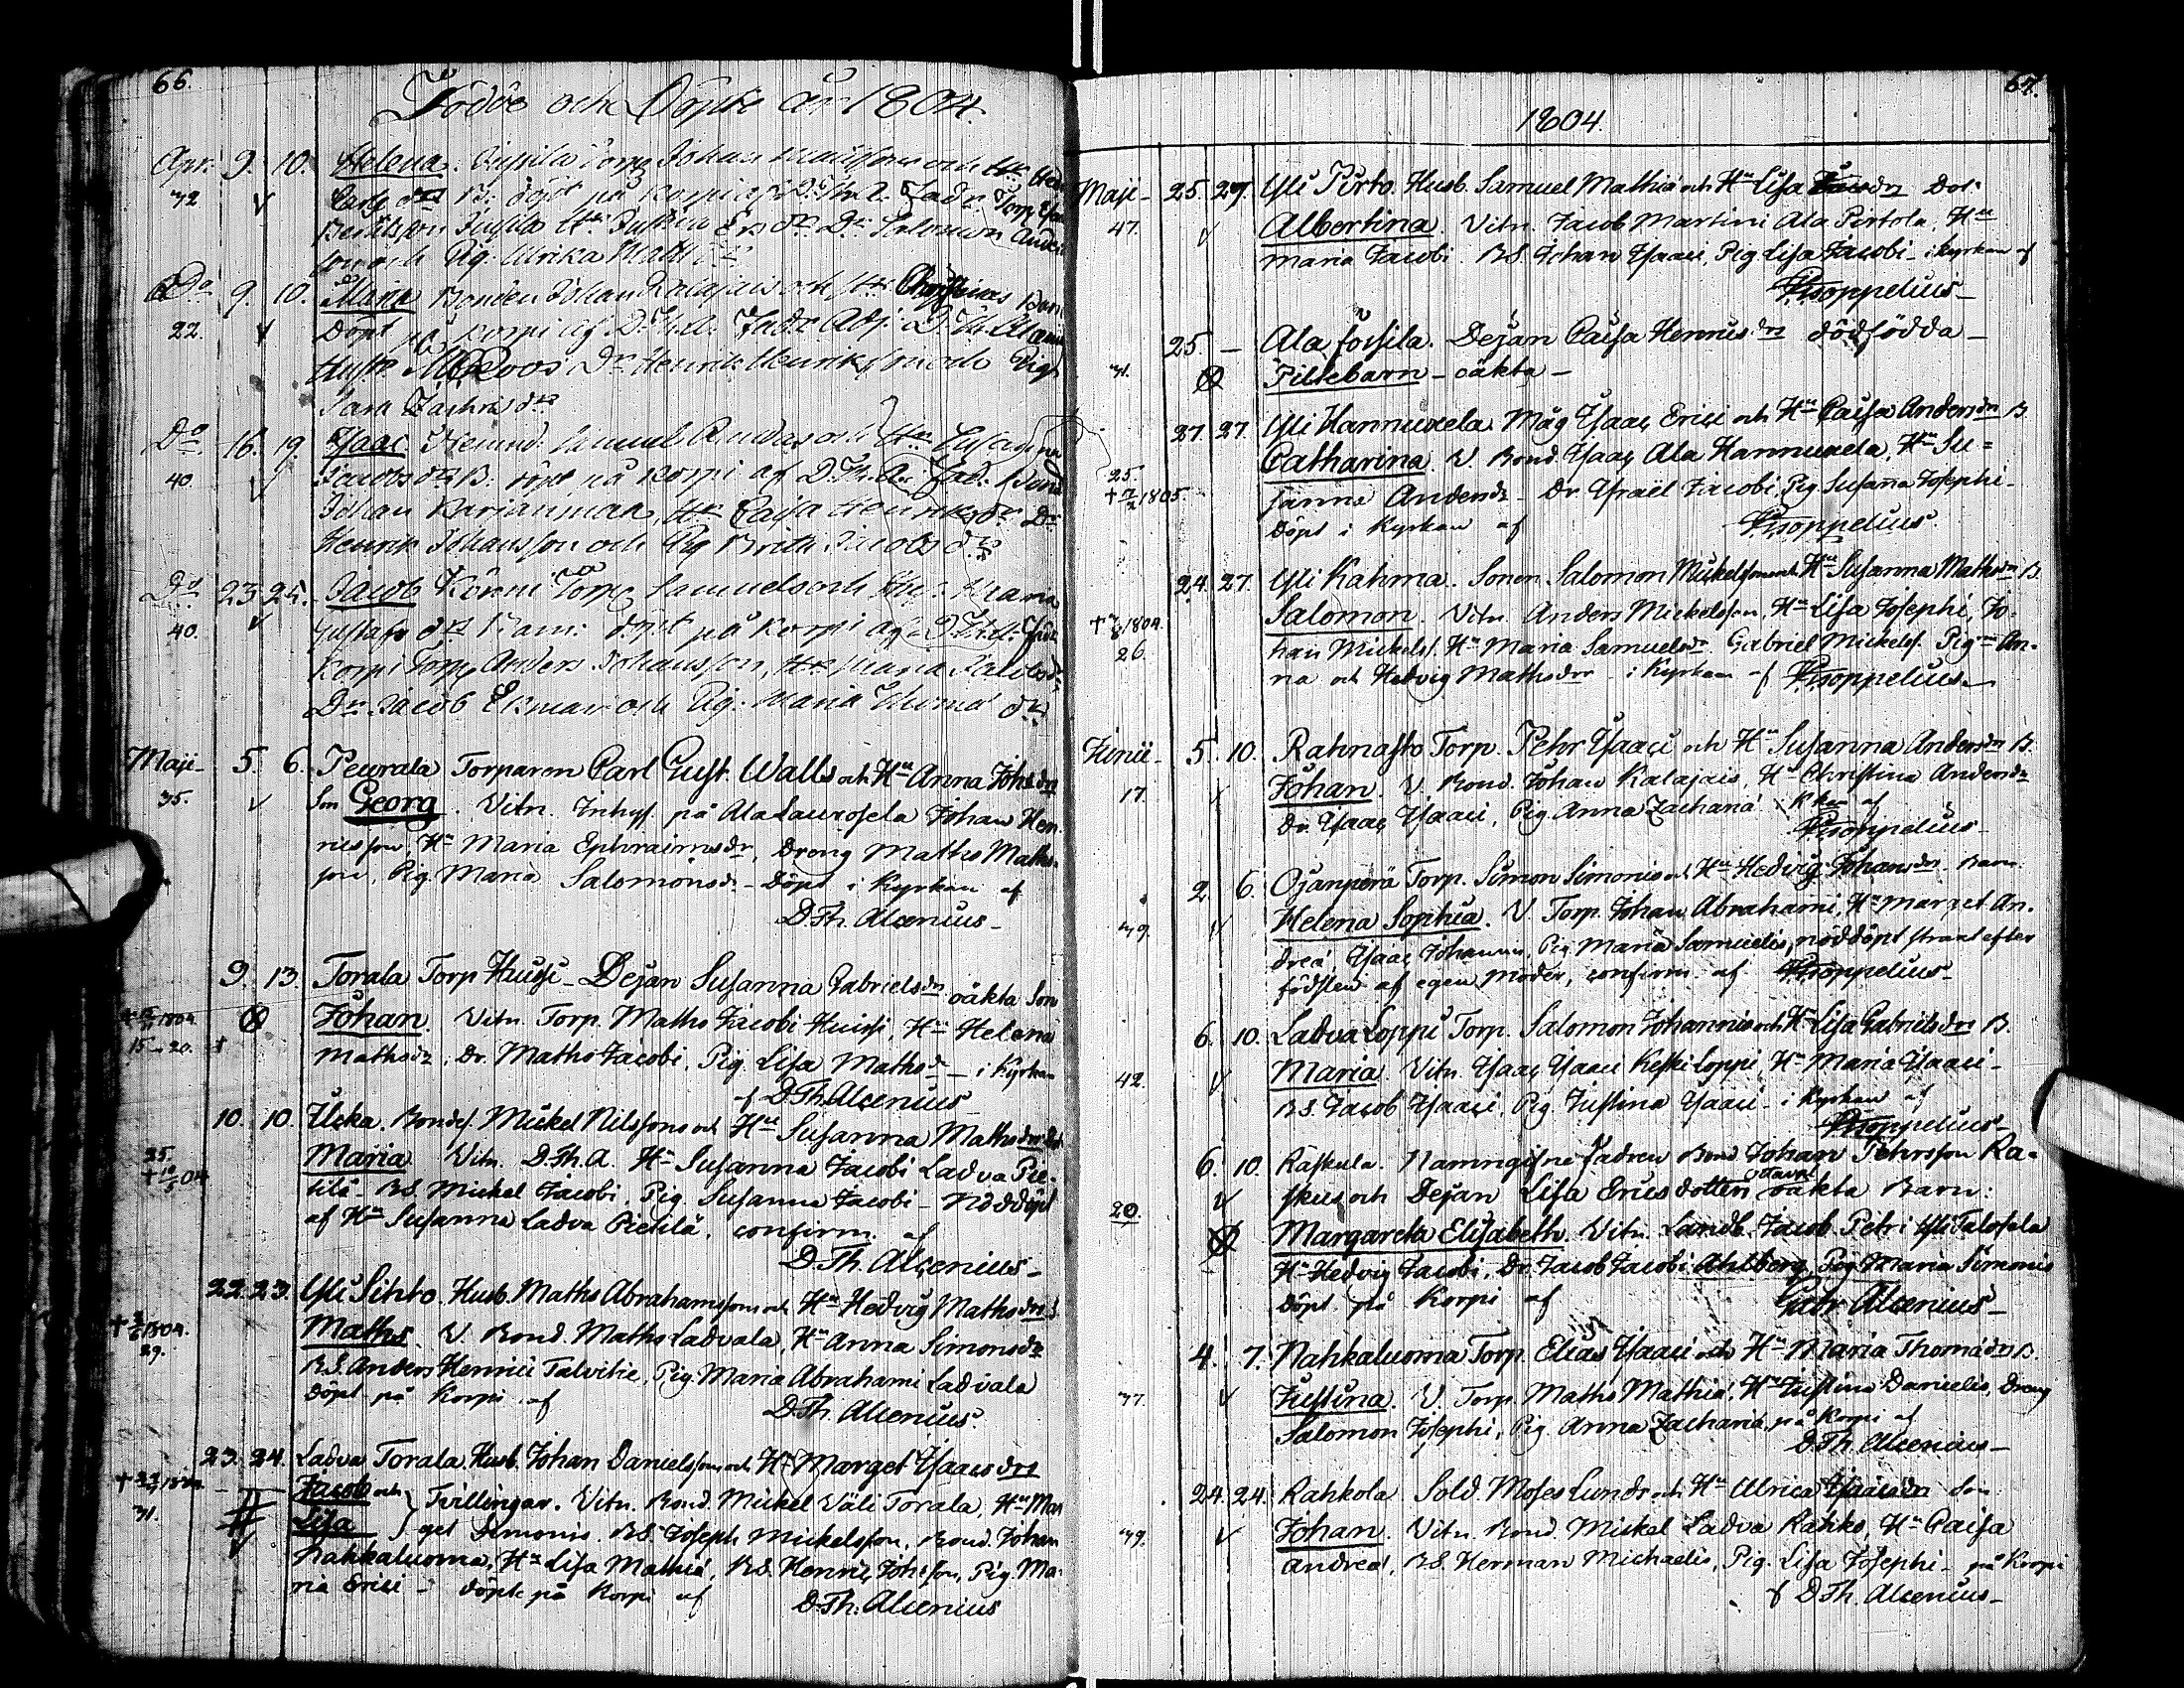 66.
Födde och Döpte år 1804.
Apr. 9. 10. Helena. Torp Johan och Hu
32 döpt på Korpi af D. Th. A. Fadr. Torp
Hu Justina Dr Salomon Anders
son och Pig. Ulrika Matts dr
Do 9. 10. Maria Bonden Johan Kalajais och Hu Christina Barn
22. Döpt på Korpi af D. Th. A. Fadr Adj. D. Th. Alcenius
Hustr. Roos Dr Henrik Henriksson och Pig
Sara Zachris dr
Do 16. 19. Isaac och Hu Susanna
40. Jacobs dr B. döpt på Korpi af D. Th. A. Fad. Bond
Johan Hu Caisa Henriks dr Dr
Henrik Johansson och Pig Brita Jacobs dr
Do 23 25. Jacob Könni Torp Samuel och Hu
40. Gustafs dr Barn döpt på Korpi af D. Th. A.
Korpi Torp Anders Johansson, Hu Maria Jacobs dr
Dr Jacob Ekman och Pig. Maria dr
Maji 5. 6. Peurala Torparen Carl Gust. Walls och Hu Anna Johs dr
35. Son Georg. Vitn. Inhys. på Ala Laurosela Johan Hen-
ricsson, Hu Maria Ephraimsdr, Dräng Matts Matts-
son, Pig. Maria Salomonsdr - Döpt i Kyrkan af
D. Th. Alcenius
9. 13. Torala Torp Huissi - Dejan Susanna Gabrielsdr oäkta Son
1804. Johan. Vitn. Torp. Matts Jacobi Huissi, Hu Helena
15 - 20. Mattsdr, Dr. Matts Jacobi, Pig. Lisa Mattsdr - i Kyrkan
af D. Th. Alcenius
10. 10. Ilcka. Bondes. Mickel Nilsson och Hu Susanna Mattsdr
25. Maria Vitn. D. Th. A. Hu Susanna Jacobi Ladva Pie-
tilä - B.S. Mickel Jacobi, Pig. Susanna Jacobi - Nöddöpt
af Hu Susanna Ladva Pietilä, confirm. af
D. Th. Alcenius
22. 23. Yli Sihto. Husb. Matts Abrahamsson och Hu Hedvig Mattsdr
1804. Matts. V. Bond. Matts Ladvala, Hu Anna Simonsdr
29. B.S. Anders Henrici Talvitie, Pig. Maria Abrahami Ladvala
döpt på Korpi af
D. Th. Alcenius.
23. 24. Ladva Torala Husb. Johan Danielsson och Hu Marget Isaacsdr
1804. Jacob och
31. Lisa Tvillingar. Vitn. Bond. Mickel Väli Torala, Hu Mar-
get Simonis. B.S. Joseph Mickelsson, Bond. Johan
Nahkaluoma, Hu Lisa Mathiæ, B.S. Henric Johsson, Pig. Ma-
ria Erici - döpte på Korpi af
D. Th. Alcenius
67.
1804.
Maji 25. 27. Yli Pirto. Husb. Samuel Mathiæ och Hu Lisa dr Dot.
47. Albertina. Vitn. Jacob Martini Ala Pirtola, Hu
Maria Jacobi. B.S. Johan Isaaci, Pig. Lisa Jacobi - i Kyrkan af
Kroppelius
25. - Ala Jossila. Dejan Caisa Henricsdr dödfödda
31. Piltebarn - oäkta -
27. 27. Yli Hannuxela Måg Isaac Erici och Hu Caisa Andersdr B.
25. Catharina. V. Bond. Isaac Ala Hannuxela, Hu Su-
1805. sanna Andersdr - Dr. Israël Jacobi, Pig. Susanna Josephi -
döpt i Kyrkan af Kroppelius.
24. 27. Yli Kahma. Sonen Salomon Mickelsson och Hu Susanna Mattsdr B.
1804. Salomon. Vitn. Anders Mickelsson, Hu Lisa Josephi, Jo-
26. han Mickels. Hu Maria Samuelsdr. Gabriel Mickels. Pig An-
na och Hedvig Mattsdr - i Kyrkan af Kroppelius
Junii 5. 10. Rahnasto Torp. Pehr Isaaci och Hu Susanna Andersdr B.
17. Johan. V. Bond. Johan Kalajais, Hu Christina Andersdr
Dr. Isaac Isaaci, Pig. Anna Zachariæ i Kkan af
Kroppelius
2. 6. Ojanperä Torp. Simon Simonis och Hu Hedvig Johansdr. Barn
39. Helena Sophia. V. Torp. Johan Abrahami, Hu Marget An-
dreæ Isaac Johannis, Pig. Maria Samuelis, nöddöpt strax efter
födslen af egen Moder, confirm. af Kroppelius
6. 10. Ladva Loppi Torp. Salomon Johannis och Hu Lisa Gabrielsdr B.
42. Maria. Vitn. Isaac Isaaci Keski Loppi, Hu Maria Isaaci -
B.S. Jacob Isaaci, Pig. Justina Isaaci - i Kyrkan af
Kroppelius
6. 10. Raskula. Namngifne Fadren Bond Johan Pehrsson Ra-
skus och Dejan Lisa Ericsdotters oäkta Barn:
20. Margareta Elisabeth. Vitn. Landb. Jacob Petri Yli Talosela
Hu Hedvig Jacobi, Dr. Jacob Jacobi Ahlberg, Pig. Maria Simonis
döpt på Korpi af Gabr. Alcenius
4. 7. Nahkaluoma Torp. Elias Isaaci och Hu Maria Thomædr B.
37. Justina. V. Torp. Matts Mathiæ, Hu Justina Danielis, Dräng
Salomon Josephi, Pig. Anna Zachariæ på Korpi af
D. Th. Alcenius
24. 24. Rahkola. Sold. Moses Lundr och Hu Ulrica Isaacsdr Son
39. Johan. Vitn. Bond. Mickel Ladva Rahko, Hu Caisa
Andreæ, B.S. Herman Michaelis, Pig. Lisa Josephi - på Korpi
af D. Th. Alcenius